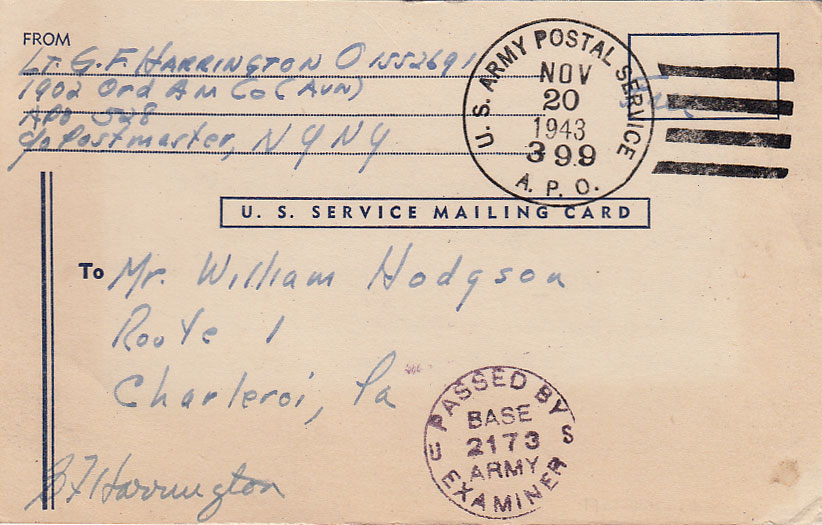 FROM
Lt. G. F. Harrington O 1552691
1902 Ord Am Co (Avn)
APO 528
c/o Postmaster, N Y N Y
U. S. ARMY POSTAL SERVICE
NOV
20
1943
399
A. P. O.
Free
U. S. SERVICE MAILING CARD
To Mr. William Hodgson
Route 1
Charleroi, Pa
PASSED BY
BASE
U 2173 S
ARMY
EXAMINER
G F Harrington